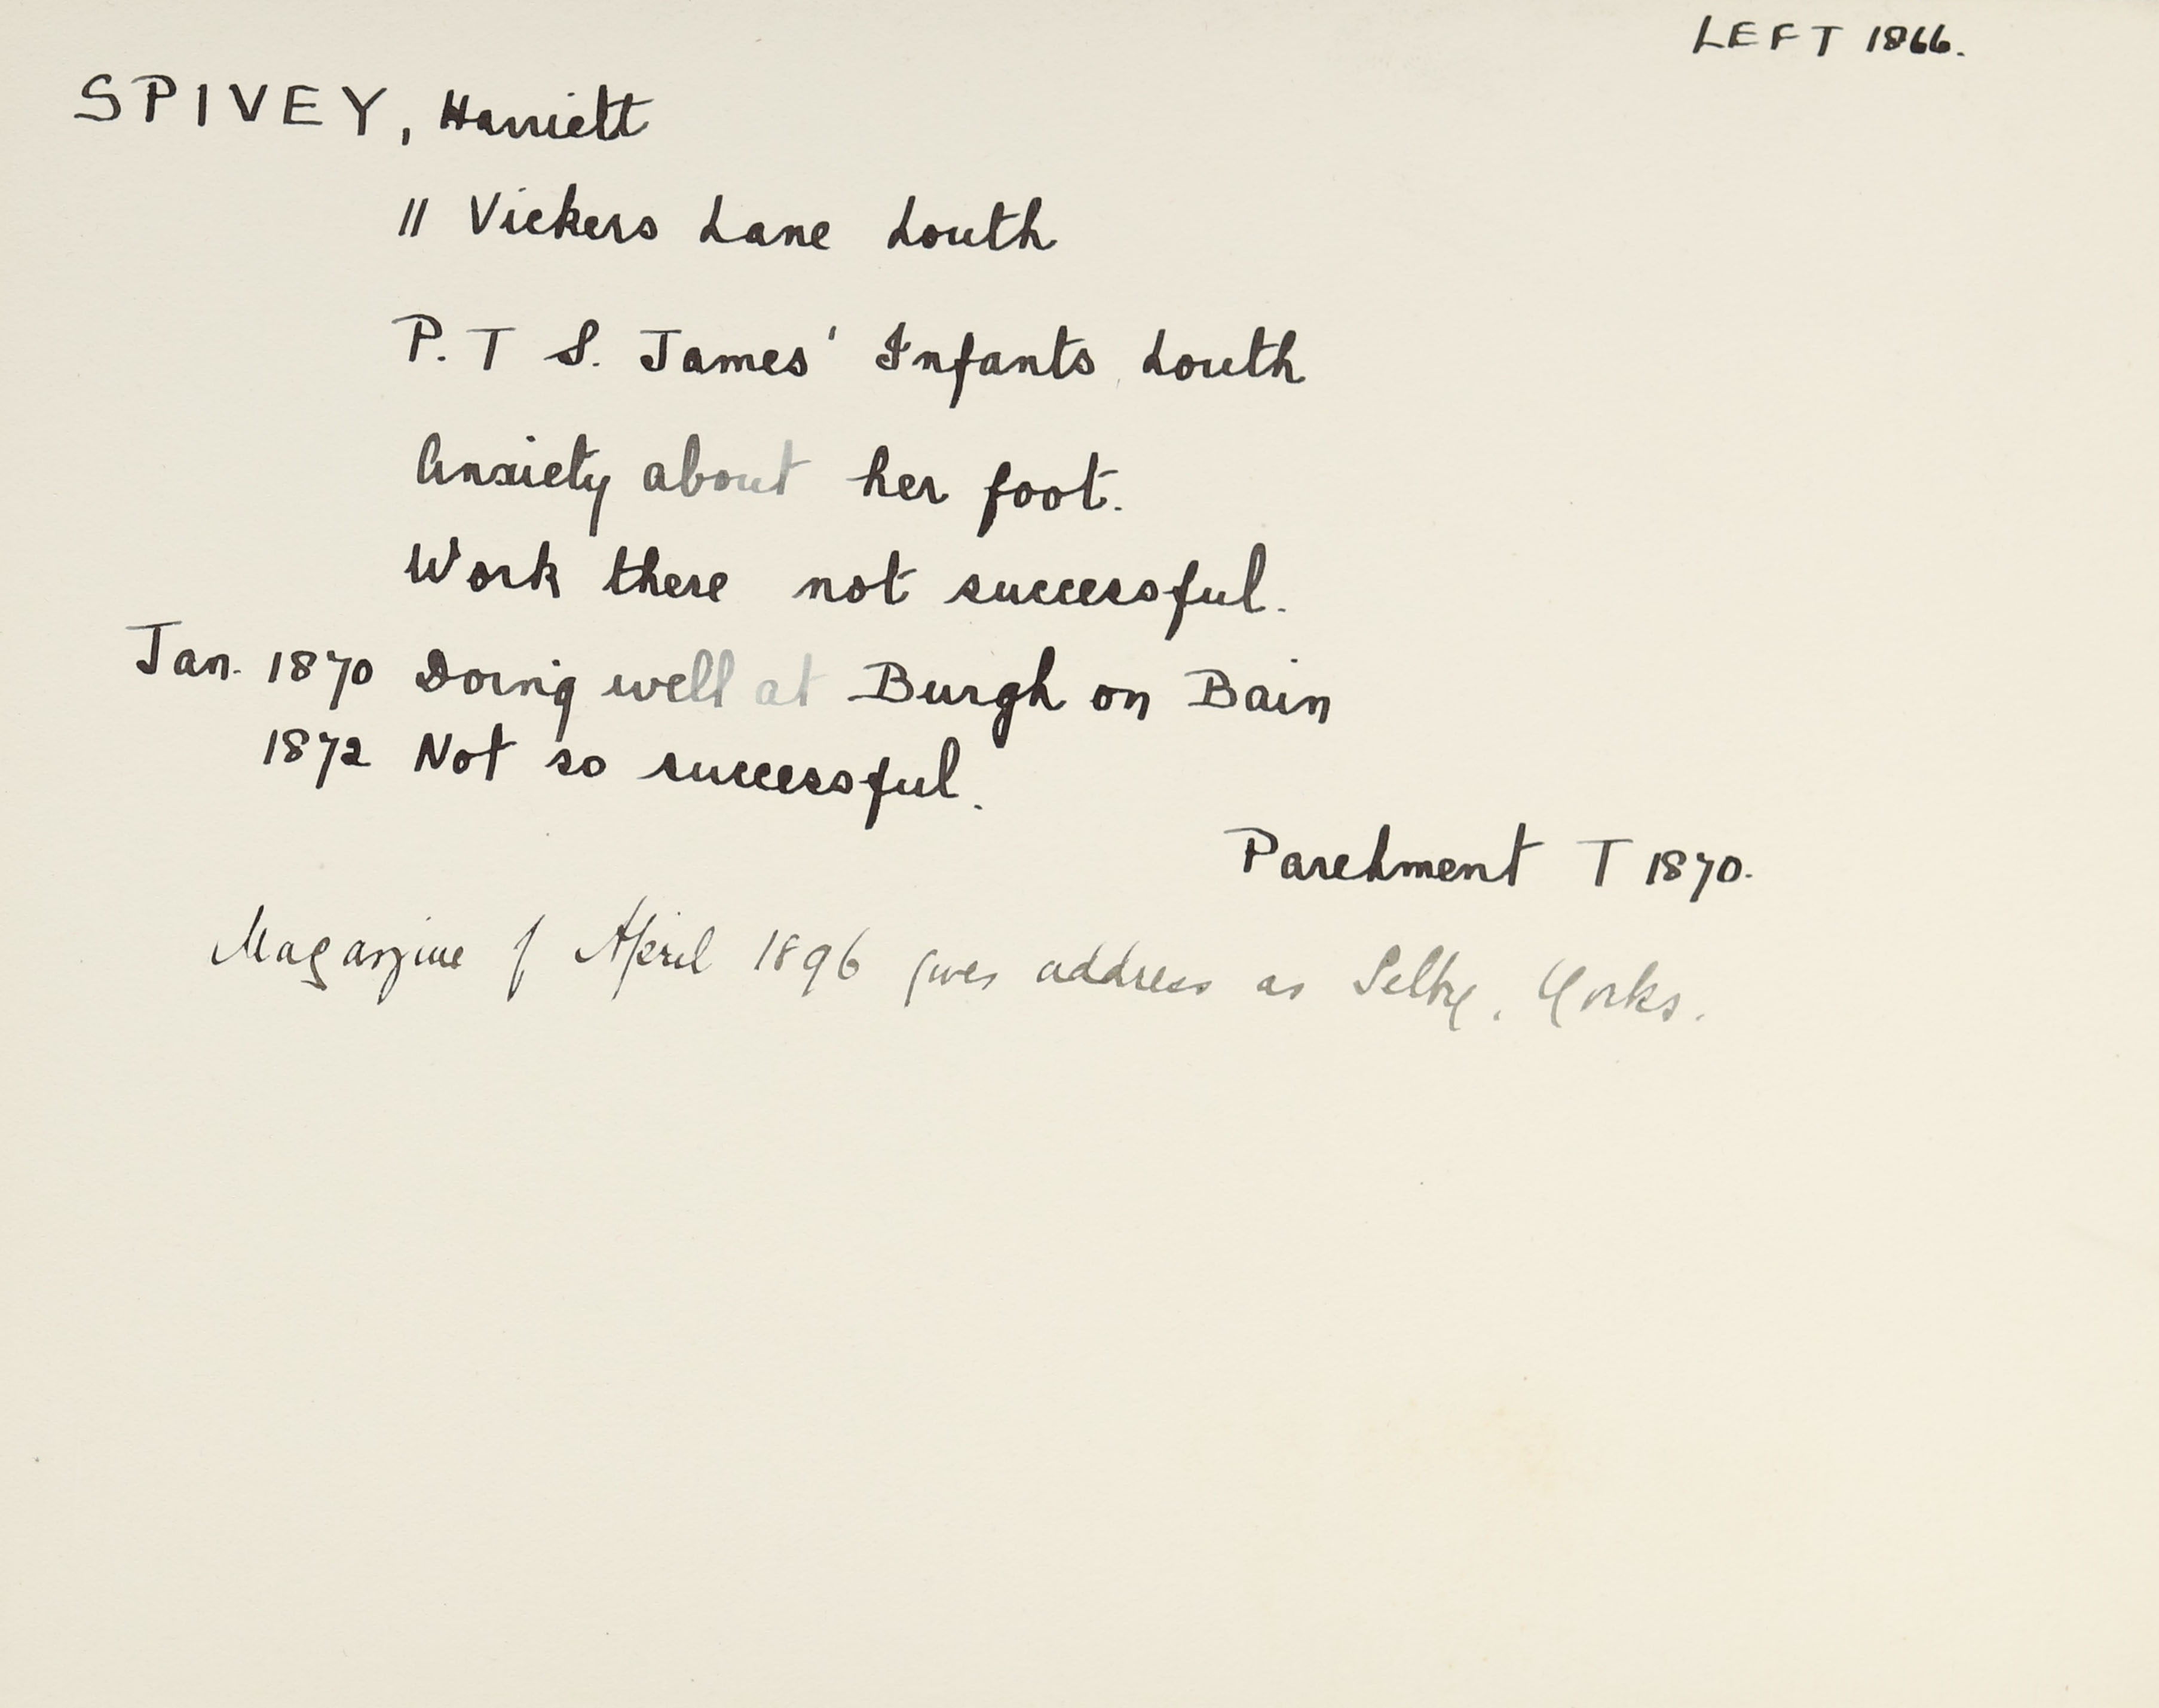 LEFT 1866.
SPIVEY, Harriett
11 Vickers Lane Louth
P. T S. James' Infants Louth
Anxiety about her foot.
Work there not successful.
Jan. 1870 Doing well at Burgh on Bain
1872 Not so successful.
Parchment T 1870.
Magazine of April 1896 gives address as Selby. Yorks.